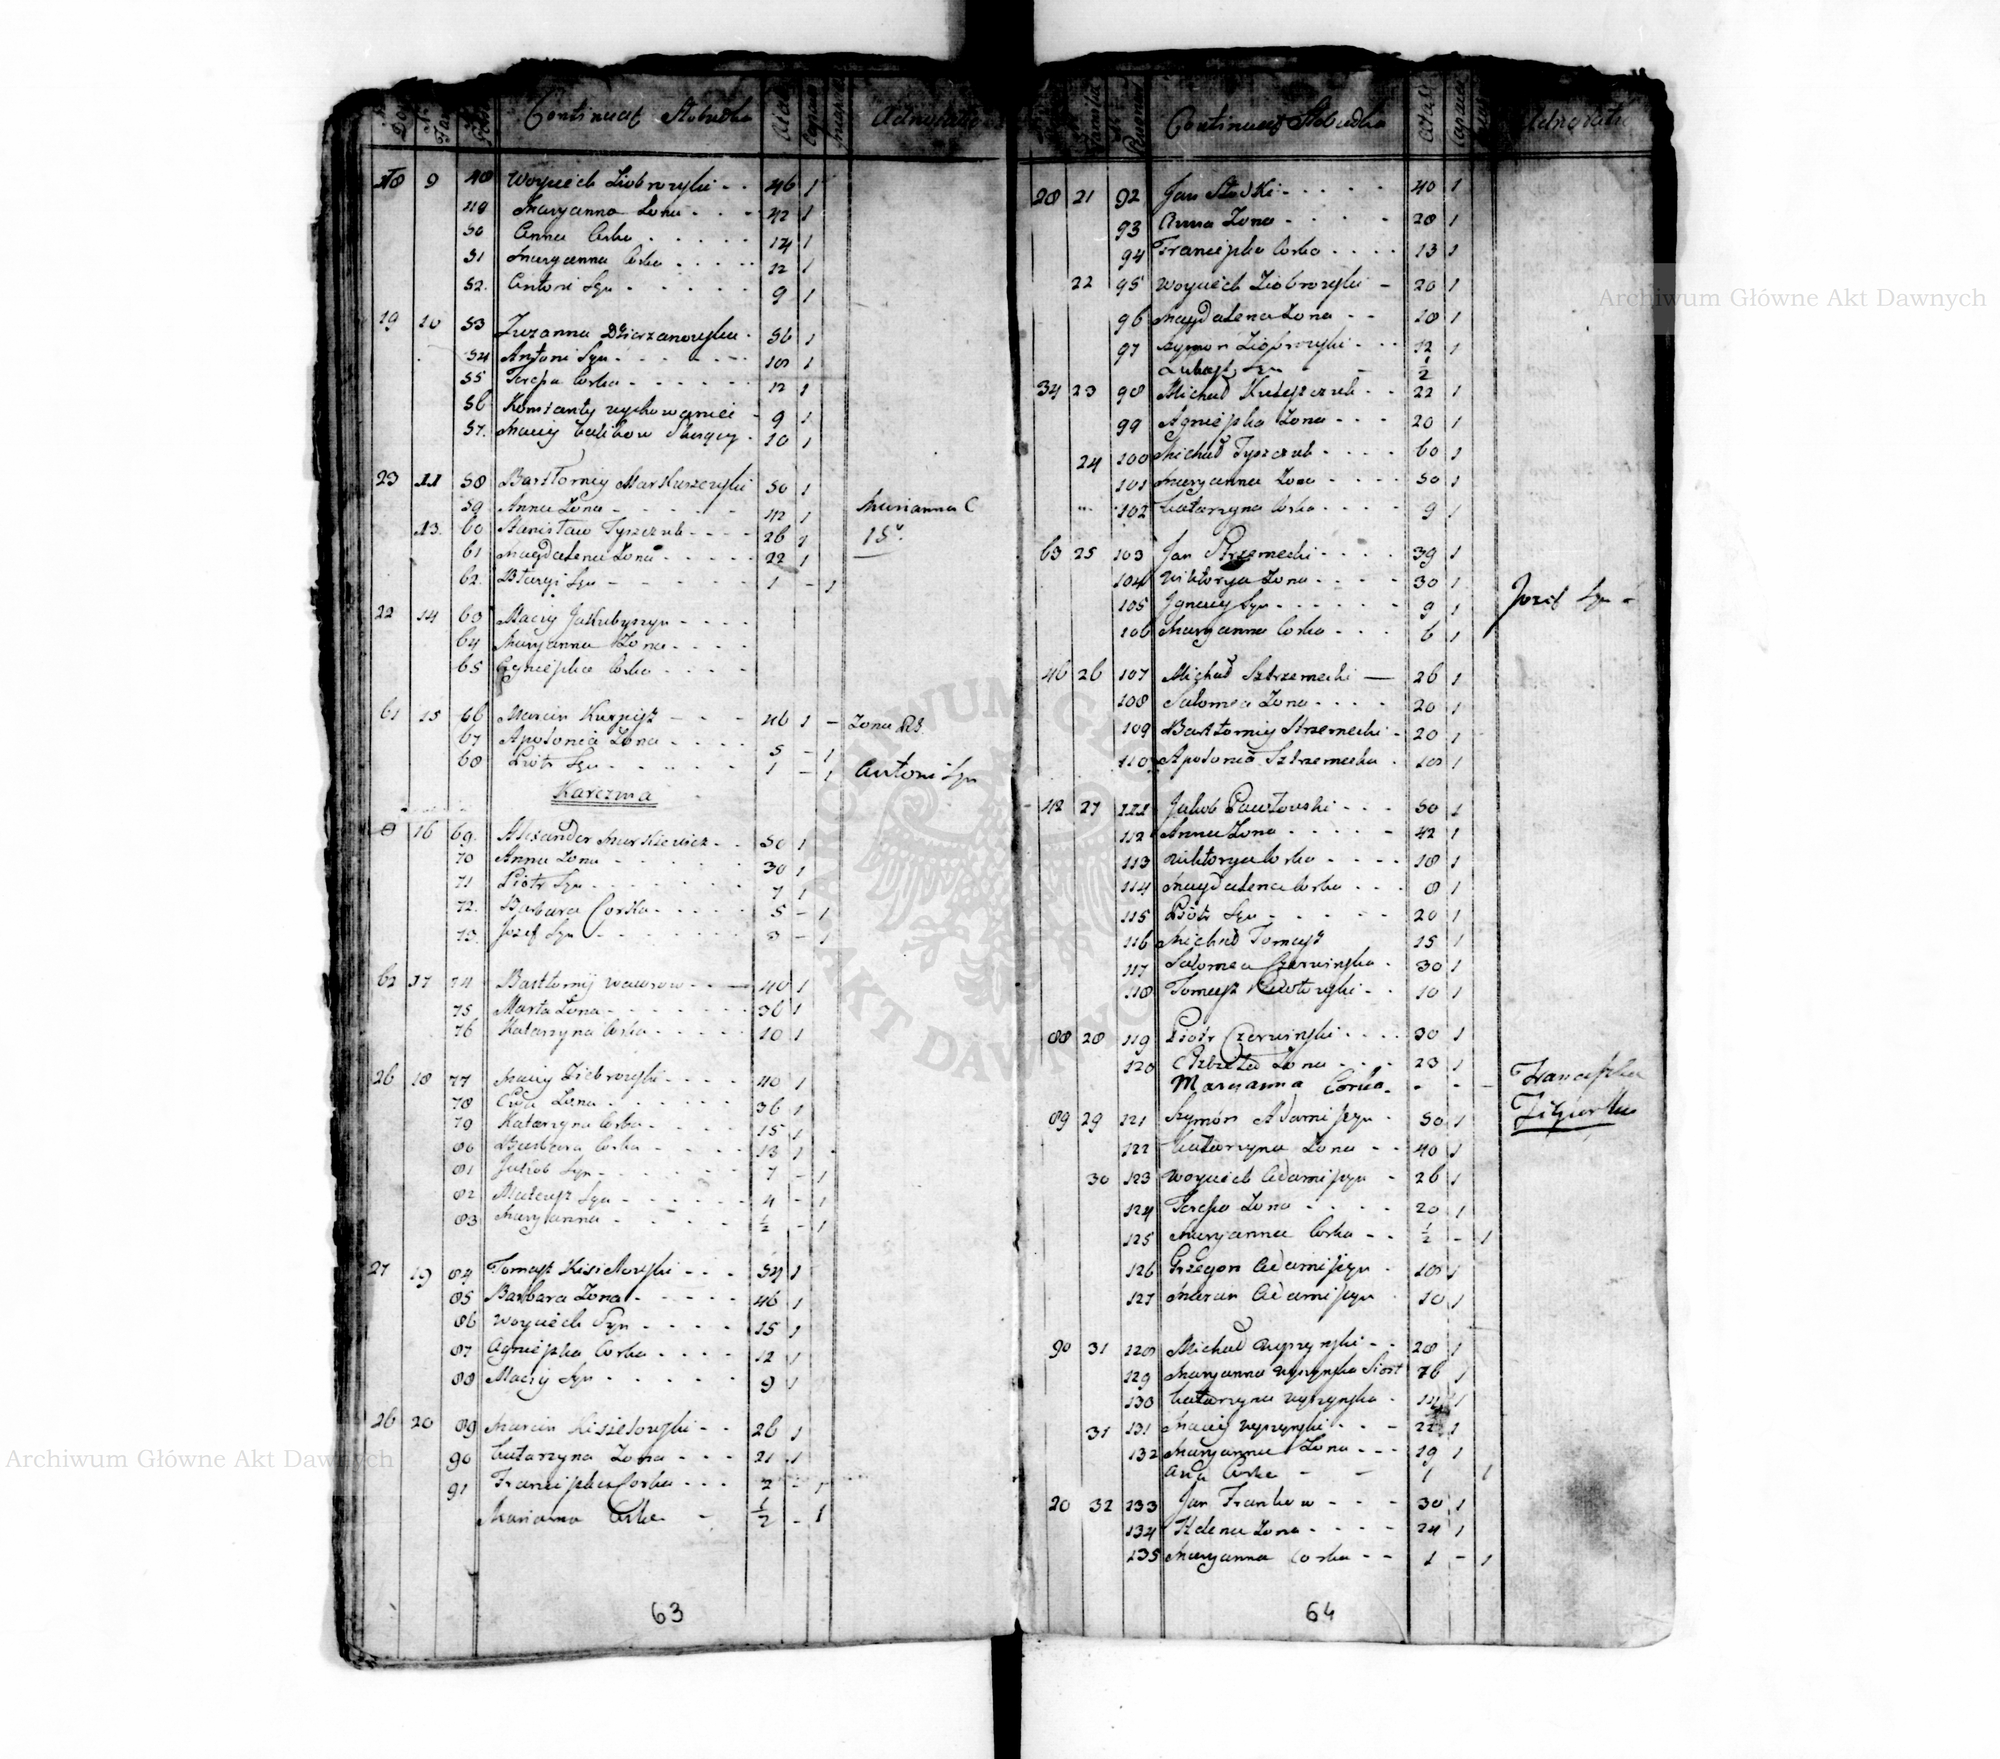 Continuat Słobudka
Adnotatio
18 9 48 Woyciech Ziobrowski 46 1
49 Maryanna Zona 42 1
50 Anna Corka 14 1
51 Maryanna Corka 12 1
52. Antoni Syn 9 1
19 10 53 Zuzanna Dzierzanowska 56 1
54 Antoni Syn 18 1
55 Teressa Corka 12 1
56 Konstanty wychowaniec 9 1
57. Maciy 10 1
23 11 58 Bartłomiy Markuszewski 50 1
59 Anna Zona 42 1
Marianna C
13. 60 Stanisław Tyszczuk 26 1
15.
61 Magdalena Zona 22 1
62. Błazy Syn 1 - 1
22 14 63 Maciy Jakubyszyn
64 Maryanna Zona
65 Agnieszka Corka
61 15 66 Marcin Kurpisz 46 1 - Zona
67 Apolonia Zona 5 - 1
68 Piotr Syn 1 - 1 Antoni Syn
Karczma
16 69. Alexander Markiewicz 50 1
70 Anna Zona 30 1
71 Piotr Syn 7 1
72. Barbara Corka 5 - 1
73. Jozef Syn 3 - 1
62 17 74 Bartłomiy Wawrow 40 1
75 Marta Zona 36 1
76 Katarzyna Corka 10 1
26 18 77 Maciy Ziobrowski 40 1
78 Ewa Zona 36 1
79 Katarzyna Corka 15 1
80 Barbara Corka 13 1
81 Jakob Syn 7 - 1
82 Mateusz Syn 4 - 1
83 Maryanna ½ - 1
27 19 84 Tomasz Kisielowski 54 1
85 Barbara Zona 46 1
86 Woyciech Syn 15 1
87 Agnieszka Corka 12 1
88 Maciy Syn 9 1
26 20 89 Marcin Kisielowski 26 1
90 Katarzyna Zona 21 1
91 Franciszka Corka 2 - 1
Marianna Corka ½ - 1
63
Continuat Słobudka
Adnotatio
28 21 92 Jan Stoski 40 1
93 Anna Zona 28 1
94 Franciszka Corka 13 1
22 95 Woyciech Ziobrowski 20 1
96 Magdalena Zona 18 1
97 Szymon Ziobrowski 12 1
Łukasz Syn ½
34 23 98 Michał 22 1
99 Agnieszka Zona 20 1
24 100 Michał Tyszczuk 60 1
101 Maryanna Zona 50 1
102 Katarzyna Corka 9 1
63 25 103 Jan Strzemecki 39 1
104 Wiktorya Zona 30 1
Jozef Syn
105 Ignacy Syn 9 1
106 Maryanna Corka 6 1
46 26 107 Michał Sztrzemecki 26 1
108 Salomea Zona 20 1
109 Bartłomiy Strzemecki 20 1
110 Apolonia Sztrzemecka 18 1
42 27 111 Jakob Pawłowski 50 1
112 Anna Zona 42 1
113 Wiktorya Corka 18 1
114 Magdalena Corka 8 1
115 Piotr Syn 20 1
116 Michał Tomasz 15 1
117 Salomea Czerwinska 30 1
118 Tomasz Pawłowski 10 1
88 28 119 Piotr Czerwinski 30 1
120 Elzbieta Zona 23 1
Maryanna Corka
Franciszka
89 29 121 Szymon Adamiszyn 50 1
122 Katarzyna Zona 40 1
30 123 Woyciech Adamiszyn 26 1
124 Teressa Zona 20 1
125 Maryanna Corka ½ - 1
126 Grzegorz Adamiszyn 18 1
127 Marcin Adamiszyn 10 1
90 31 128 Michał Wyszynski 28 1
129 Maryanna Wyszynska Siost 76 1
130 Katarzyna Wyszynska 14 1
31 131 Maciy Wyszynski 22 1
132 Maryanna Zona 19 1
Corka 1 1
20 32 133 Jan Frankow 30 1
134 Helena Zona 24 1
135 Maryanna Corka 1 - 1
64
Archiwum Główne Akt Dawnych
Archiwum Główne Akt Dawnych
ARCHIWUM GŁÓWNE AKT DAWNYCH